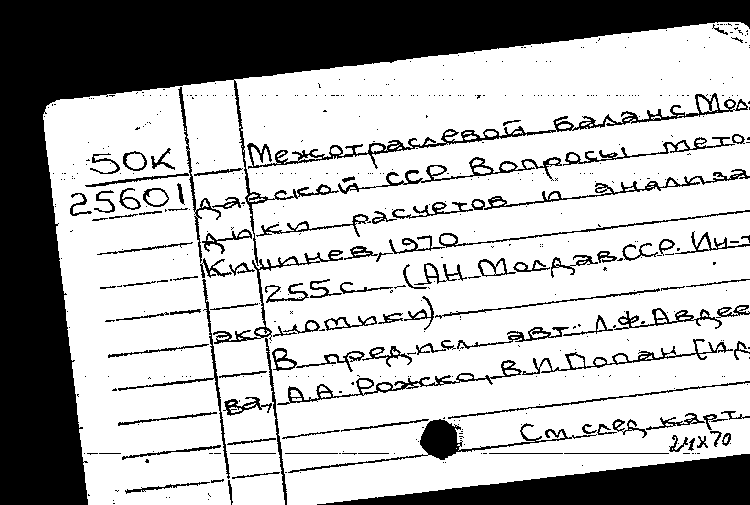 50К
25601
Межотраслевой баланс Мол-
давской ССР. Вопросы мето-
дики расчетов и анализа
Кишинев, 1970
255 с. (АН Молдав. ССР. Ин-т
экономики)
В предисл. авт.: Л.Ф. Авдее-
ва, А.А. Рожко, В.И. Попан [и др
См. след. карт.
24X70